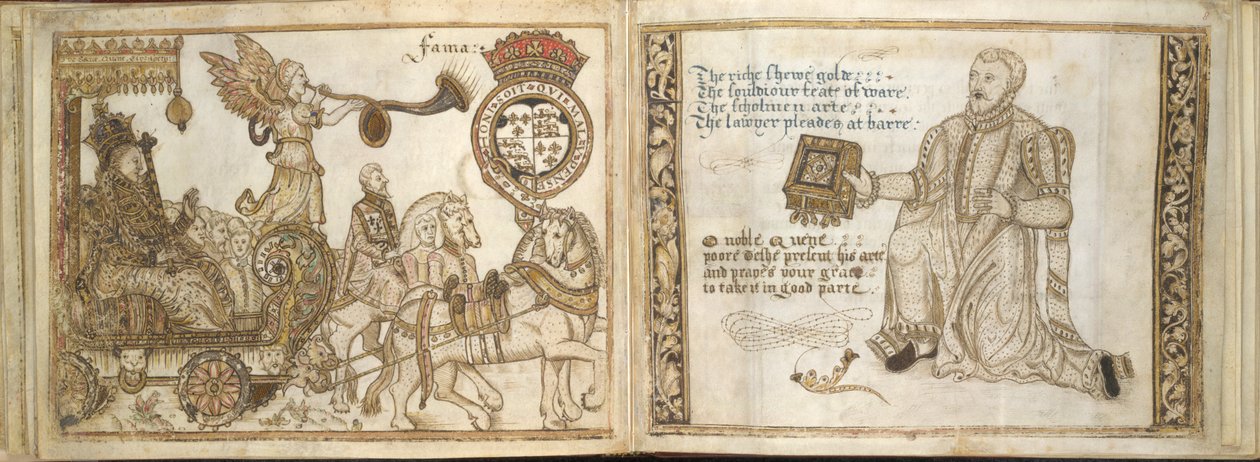 Fama:
HONI·SOIT·QVI·MAL·Y·PENSE
8
The riche shewe golde
The souldiour feats of ware.
The scholmen arte
The lawyer pleades at barre:
O noble Quene
poore Teshe present his arte
and prayes your grace
to take it in good parte